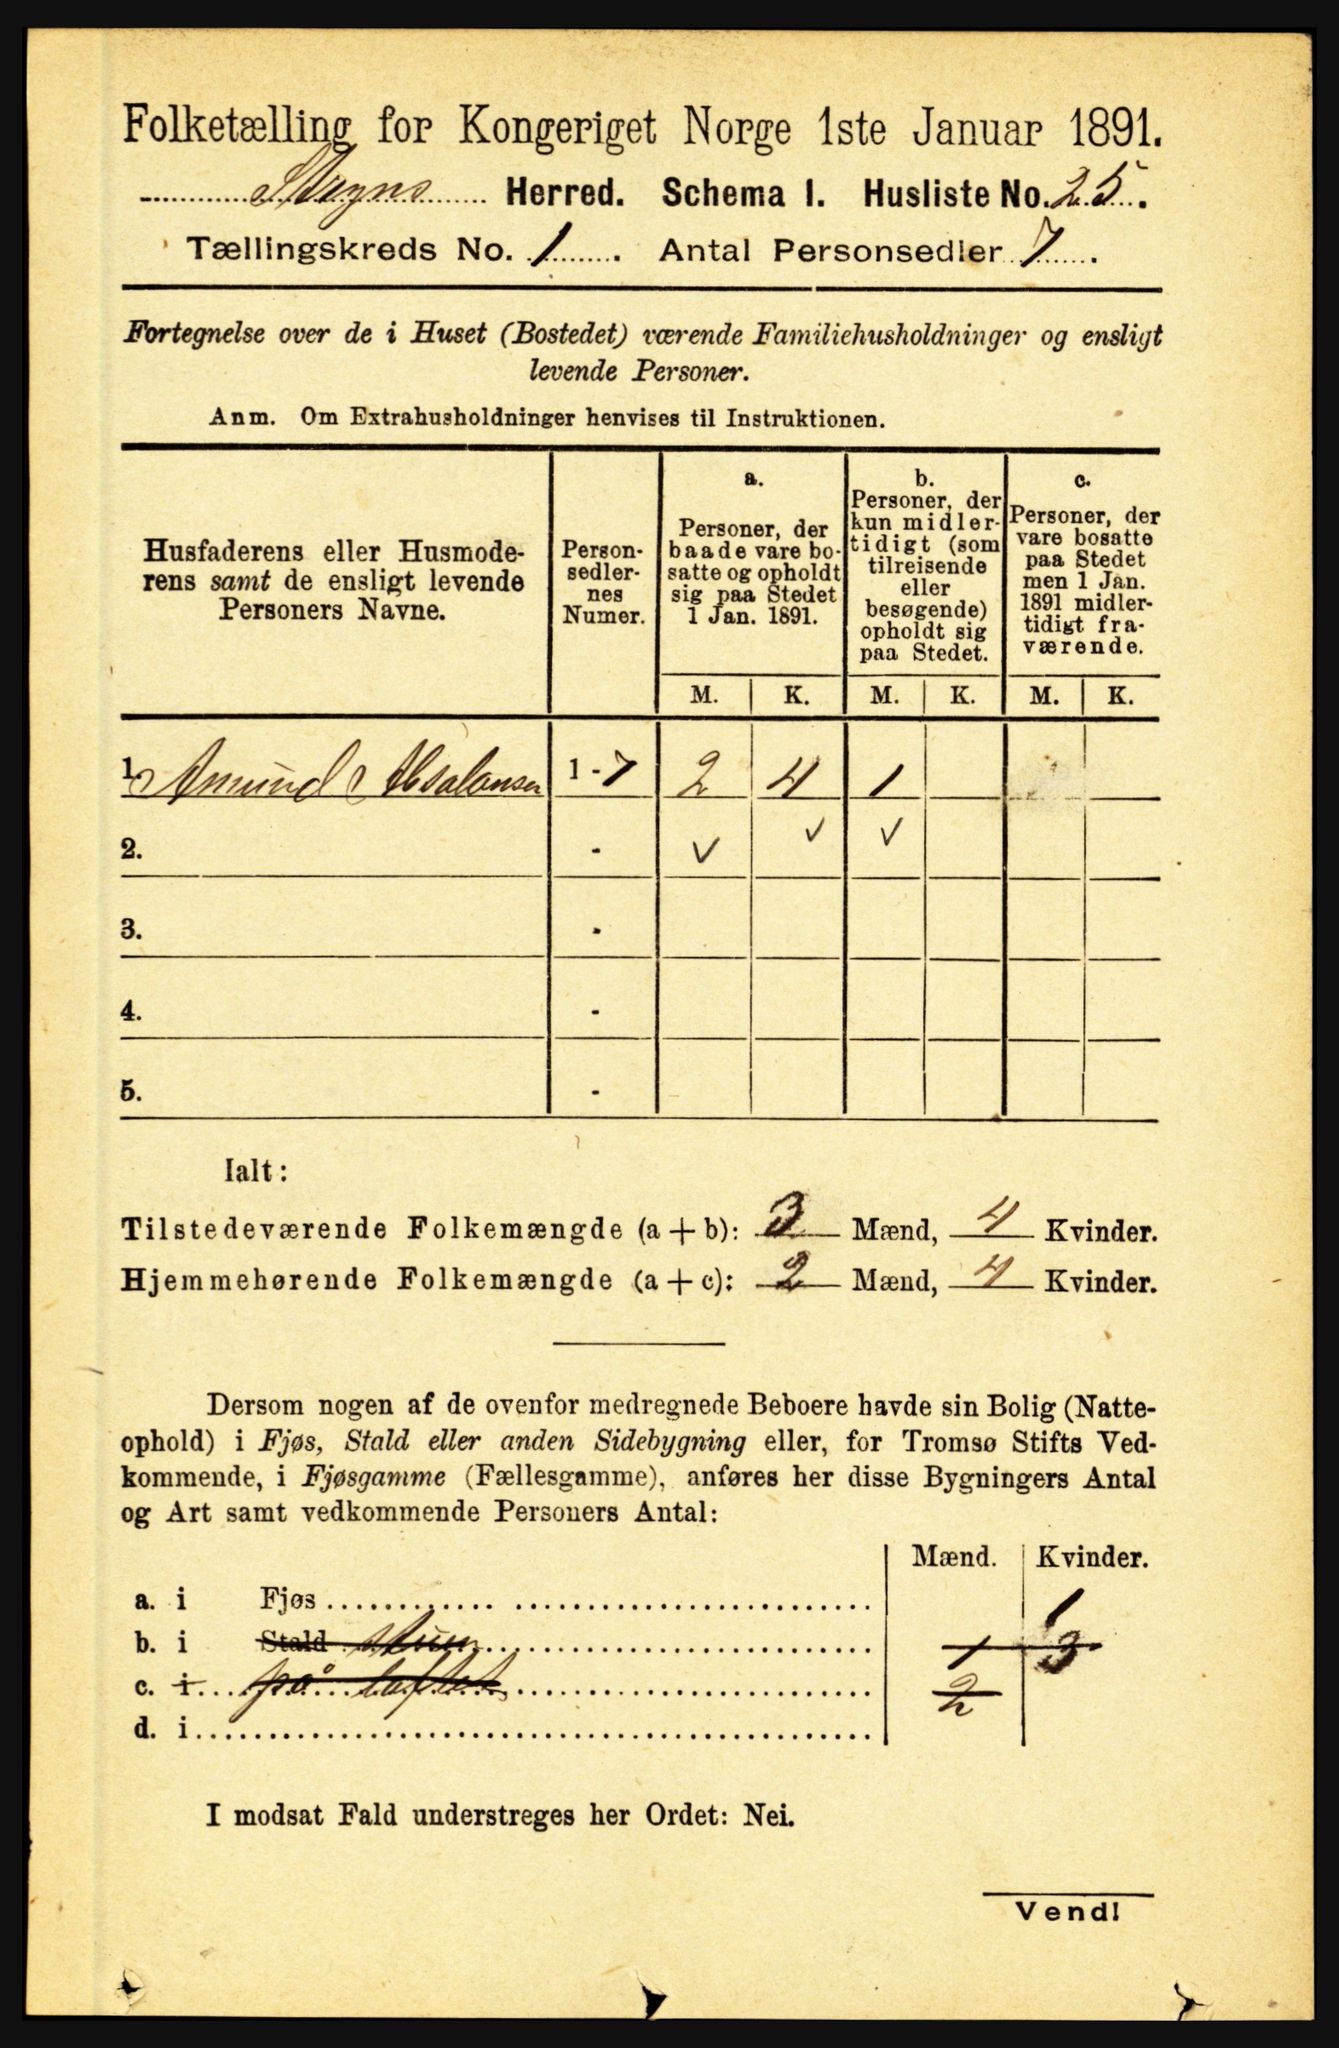 Folketælling for Kongeriget Norge 1ste Januar 1891.
Stryns Herred. Schema I. Husliste No. 25.
Tællingskreds No. 1. Antal Personsedler 7.
Fortegnelse over de i Huset (Bostedet) værende Familiehusholdninger og ensligt
levende Personer.
Anm. Om Extrahusholdninger henvises til Instruktionen.
Husfaderens eller Husmode-
rens samt de ensligt levende
Personers Navne.
Person-
sedler-
nes
Numer.
a.
Personer, der
baade vare bo-
satte og opholdt
sig paa Stedet
1 Jan. 1891.
b.
Personer, der
kun midler-
tidigt (som
tilreisende
eller
besøgende)
opholdt sig
paa Stedet.
c.
Personer, der
vare bosatte
paa Stedet
men 1 Jan.
1891 midler-
tidigt fra-
værende.
M. K. M. K. M. K.
1. Amund Absalonsen 1 - 7 2 4 1
2. - ✓ ✓ ✓
3. -
4. -
5. -
Ialt:
Tilstedeværende Folkemængde (a + b): 3 Mænd, 4 Kvinder.
Hjemmehørende Folkemængde (a + c): 2 Mænd, 4 Kvinder.
Dersom nogen af de ovenfor medregnede Beboere havde sin Bolig (Natte-
ophold) i Fjøs, Stald eller anden Sidebygning eller, for Tromsø Stifts Ved-
kommende, i Fjøsgamme (Fællesgamme), anføres her disse Bygningers Antal
og Art samt vedkommende Personers Antal:
Mænd. Kvinder.
a. i Fjøs 1
b. i Stald 1 3
c. i på loftet 2
d. i
I modsat Fald understreges her Ordet: Nei.
Vend!